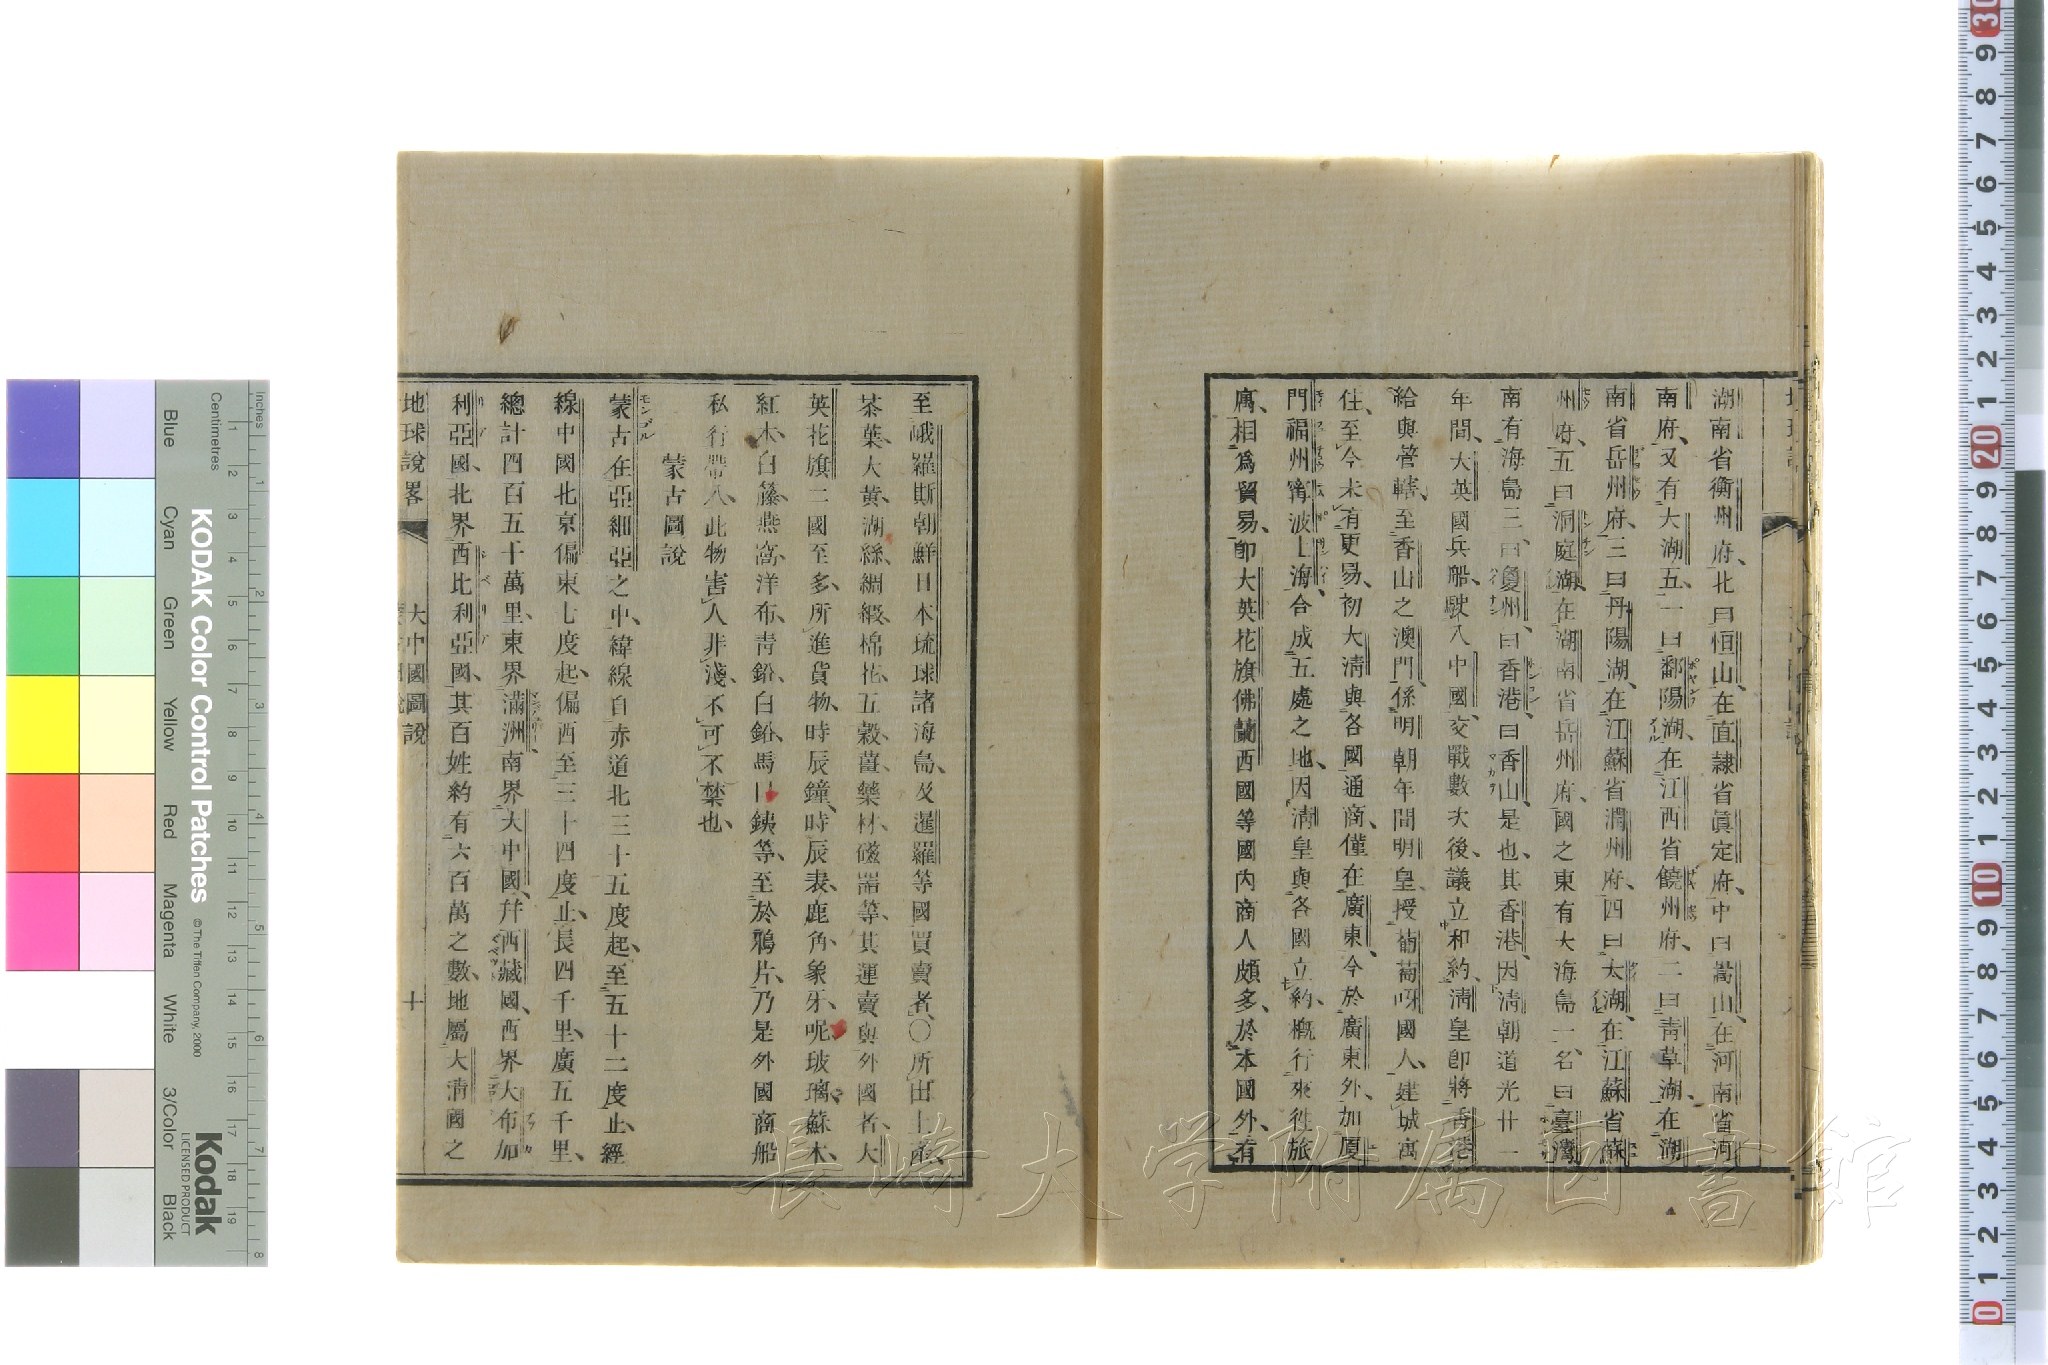 湖南省衡州府、北曰恒山、在直隷省眞定府、中曰嵩山、在河南省河
南府、又有大湖五、一曰鄱陽湖、在江西省饒州府、二曰靑草湖、在湖
南省岳州府、三曰丹陽湖、在江蘇省潤州府、四曰太湖、在江蘇省蘇
州府、五曰洞庭湖、在湖南省岳州府、國之東有大海島一、名曰臺灣
南有海島三、曰瓊州、曰香港、曰香山是也、其香港、因淸朝道光廿一
年間、大英國兵船、駛入中國、交戰數次後、議立和約、淸皇卽將香港
給與管轄、至香山之澳門、係明朝年間、明皇授葡萄呀國人、建城寓
住、至今未有更易、初大淸與各國通商、僅在廣東、今於廣東外、加厦
門福州甯波上海、合成五處之地、因淸皇與各國立約、槪行來往旅
寓、相爲貿易、卽大英花旗佛蘭西國等國內商人頗多、於本國外、有
至峨羅斯朝鮮日本琉球諸海島、及暹羅等國買賣者、〇所出土產、
茶葉、大黃、湖絲、綢緞、棉花、五穀、薑、藥材、磁器等、其運賣與外國者、大
英花旗二國至多、所進貨物、時辰鐘、時辰表、鹿角、象牙、呢、玻璃、蘇木、
紅木、白籐、燕窩、洋布、靑鉛、白鉛、馬口銕等、至於鴉片、乃是外國商船
私行帶入、此物害人非淺、不可不禁也、
蒙古圖說
蒙古在亞細亞之中、緯線自赤道北三十五度起、至五十二度止、經
線中國北京偏東七度起、偏西至三十四度止、長四千里、廣五千里、
總計四百五十萬里、東界滿洲、南界大中國、幷西藏國、西界大布加
利亞國、北界西比利亞國、其百姓約有六百萬之數、地屬大淸國之
地球說畧
大中國圖說
十